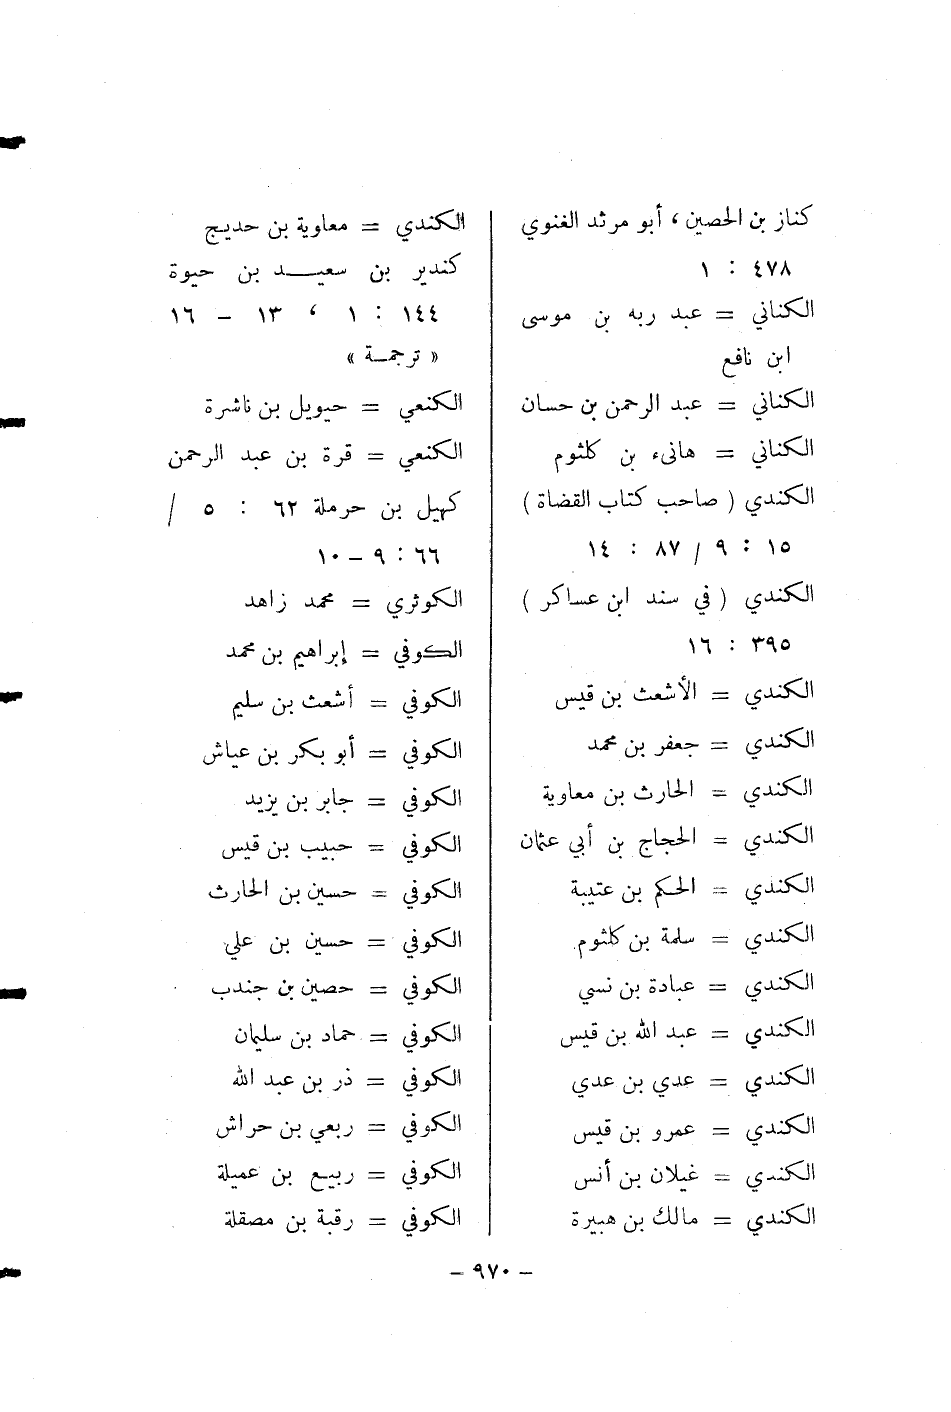 كناز بن الحصين ، أبو مرثد الغنوي
٤٧٨ : ١
الكناني = عبد ربه بن موسى
ابن نافع
الكناني = عبد الرحمن بن حسان
الكناني = هانىء بن كلثوم
الكندي ( صاحب كتاب القضاة )
١٥ : ٩ / ٨٧ : ١٤
الكندي ( في سند ابن عساكر )
٣٩٥ : ١٦
الكندي = الأشعث بن قيس
الكندي = جعفر بن محمد
الكندي = الحارث بن معاوية
الكندي = الحجاج بن أبي عثمان
الكندي = الحكم بن عتيبة
الكندي = سلمة بن كلثوم
الكندي = عبادة بن نسي
الكندي = عبد الله بن قيس
الكندي = عدي بن عدي
الكندي = عمرو بن قيس
الكندي = غيلان بن أنس
الكندي = مالك بن هبيرة
الكندي = معاوية بن حديج
كندير بن سعيد بن حيوة
١٤٤ : ١ ، ١٣ – ١٦
« ترجمة »
الكنعي = حيويل بن ناشرة
الكنعي = قرة بن عبد الرحمن
كهيل بن حرملة ٦٢ : ٥ /
٦٦ : ٩ – ١٠
الكوثري = محمد زاهد
الكوفي = إبراهيم بن محمد
الكوفي = أشعث بن سليم
الكوفي = أبو بكر بن عياش
الكوفي = جابر بن يزيد
الكوفي = حبيب بن قيس
الكوفي = حسين بن الحارث
الكوفي = حسين بن علي
الكوفي = حصين بن جندب
الكوفي = حماد بن سليمان
الكوفي = ذر بن عبد الله
الكوفي = ربعي بن حراش
الكوفي = ربيع بن عميلة
الكوفي = رقبة بن مصقلة
– ٩٧٠ –